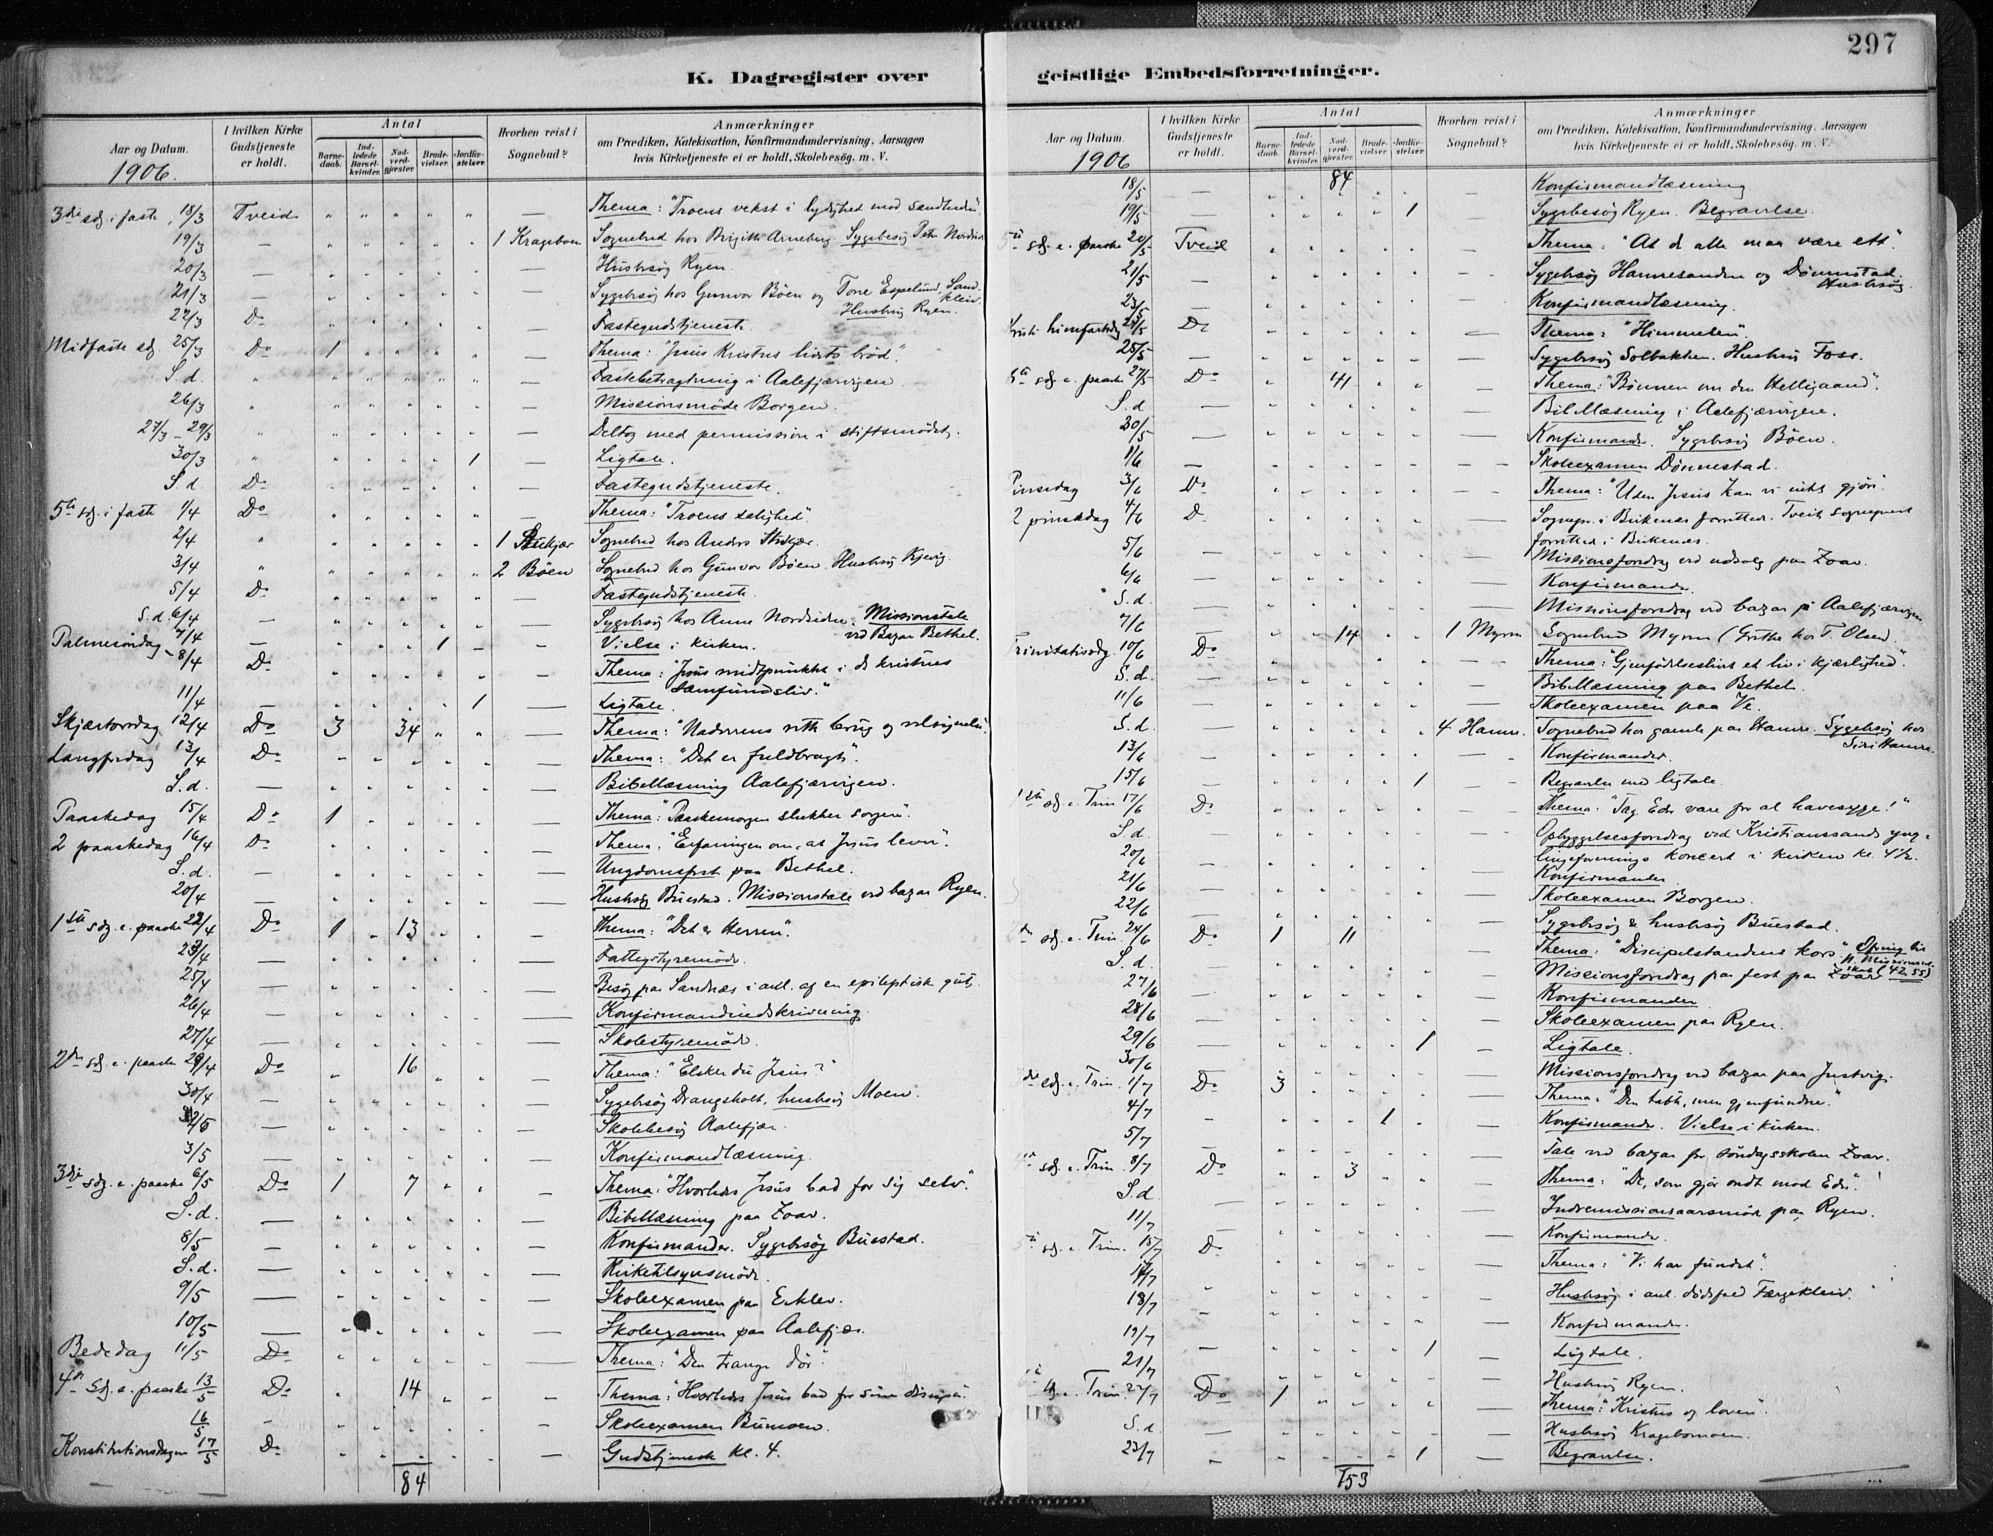 297
K. Dagregister over geistlige Embedsforretninger.
Aar og Datum.
1906.
I hvilken Kirke Gudstjeneste er holdt.
Antal
Barnedaab.
Indledede Barselkvinder.
Nadverdgjester.
Brudevielser.
Jordfæstelser.
Hvorhen reist i Sognebud?
Anmærkninger
om Prædiken, Katekisation, Konfirmandundervisning, Aarsagen
hvis Kirketjeneste ei er holdt, Skolebesøg. m. V.
3die sdg. i faste 18/3 Tveid — Thema: "Troens vekst i lydighed mod sandheden".
19/3 — 1 Krageboen Sognebud hos Brigitte Arneberg Sygebesøg Petr Nordsid
20/3 — — Husbesøg Ryen.
21/3 — — Sygebesøg hos Gunvor Bøen og Torre Espelund, Sandkleiv. Husbesøg Ryen.
22/3 Do — Fastegudstjeneste.
Midfaste sdg. 25/3 Do 1 — Thema: "Jesus Kristus livets brød".
S.d. — Fastebetragtning i Aalefjærvigen
26/3 — Missionsmøde Borgen.
27/3 – 29/3 — Deltog med permission i stiftsmødet.
30/3 1 — Ligtale.
S.d. Do — Fastegudstjeneste.
5te sdg. i faste 1/4 Do — Thema: "Troens salighed".
2/4 1 Stukjær Sognebud hos Anders Stukjær.
3/4 2 Bøen Sognebud hos Gunvor Bøen. Husbesøg Kjevig.
5/4 Do — Fastegudstjeneste.
S.d. 6/4 — — Sygebesøg hos Anne Nordsiden. Missionstale ved Bazar Bethel.
7/4 — 1 — Vielse i kirken.
Palmesøndag 8/4 Do — Thema: "Jesus midtpunktet i de kristnes samfundsliv."
11/4 — 1 — Ligtale.
Skjærtorsdag 12/4 Do 3 34 — Thema: "Nadverens rette brug og velsignelse".
Langfredag 13/4 Do — Thema: "Det er fuldbragt".
S.d. — — Bibellæsning Aalefjærvigen.
Paaskedag 15/4 Do 1 — Thema: "Paaskemorgen slukker sorgen".
2 paaskedag 16/4 Do — Thema: "Erfaringen om, at Jesus lever".
S.d. — — Ungdomsfest paa Bethel.
20/4 — — Husbesøg Buestad. Missionstale ved bazar Ryen.
1ste sdg. e. paaske 22/4 Do 1 13 — Thema: "Det er Herren".
23/4 — — Fattigstyremøde.
25/4 — — Besøg paa Sandnæs i anl. af en epileptisk gut.
26/4 — — Konfirmandindskrivning.
27/4 — — Skolestyremøde.
2den sdg. e. paaske 29/4 Do 16 — Thema: "Elsker du Jesus?"
30/4 — — Sygebesøg Drangsholt, husbesøg Moen.
2/5 — — Skolebesøg Aalefjær.
3/5 — — Konfirmandlæsning.
3die sdg. e. paaske 6/5 Do 1 7 — Thema: "Hvorledes Jesus bad for sig selv".
S.d. — — Bibellæsning paa Zoar.
8/5 — — Konfirmander. Sygebesøg Buestad.
S.d. — — Kirketilsynsmøde.
9/5 — — Skoleexamen paa Erklev.
10/5 — — Skoleexamen paa Aalefjær.
Bededag 11/5 Do — Thema: "Den trange dør".
4de sdg. e. paaske 13/5 Do 14 — Thema: "Hvorledes Jesus bad for sine disciple".
16/5 — — Skoleexamen Bumoen.
Konstitutionsdagen 17/5 Do — Gudstjeneste kl. 4.
84
Aar og Datum.
1906
I hvilken Kirke Gudstjeneste er holdt.
Antal
Barnedaab.
Indledede Barselkvinder.
Nadverdgjester.
Brudevielser.
Jordfæstelser.
Hvorhen reist i Sognebud?
Anmærkninger
om Prædiken, Katekisation, Konfirmandundervisning, Aarsagen
hvis Kirketjeneste ei er holdt, Skolebesøg. m. V.
84
18/5 — — Konfirmandlæsning
19/5 — 1 — Sygebesøg Ryen. Begravelse.
5te sdg. e. paaske 20/5 Tveid — Thema: "At de alle maa være ett".
21/5 — — Sygebesøg Hamresanden og Dønnestad. Husbesøg
23/5 — — Konfirmandlæsning.
Kristi himfartsdag 24/5 Do — Thema: "Himmelen".
25/5 — — Sygebesøg Solbakken. Husbesøg Foss.
6te sdg. e. paaske 27/5 Do 41 — Thema: "Bønnen om den Helligaand".
S.d. — — Bibellæsning i Aalefjærvigen.
30/5 — — Konfirmander. Sygebesøg Bøen.
1/6 — — Skoleexamen Dønnestad.
Pinsedag 3/6 Do — Thema: "Uden Jesus kan vi intet gjøre".
2 pinsedag 4/6 D — Sognepr. i Birkenes forretted. Tveits sogneprest forretted i Birkenes.
5/6 — — Missionsforedrag ved udsalg paa Zoar.
6/6 — — Konfirmander.
S.d. — — Missionsforedrag ved bazar p. Aalefjærvigen
7/6 — 14 1 Myren Sognebud Myren (Grethe hos T. Olsen).
Trinitatissdg. 10/6 Do — Thema: "Gjenfødelseslivet et liv i kjærlighed".
S.d. — Bibellæsning paa Bethel.
11/6 — — Skoleexamen paa Ve.
S.d. — 4 Hamre. Sognebud hos gamle paa Hamre. Sygebesøg hos Siri Hamre.
13/6 — — Konfirmander.
15/6 — 1 — Begravelse med ligtale
1ste sdg. e. Trin. 17/6 Do — Thema: "Tag Eder vare for al havesyge!"
S.d. — Opbyggelsesforedrag ved Kristianssands ynglingeforenings koncert i kirken kl. 4½.
20/6 — — Konfirmander
21/6 — — Skoleexamen Borgen.
22/6 — — Sygebesøg & husbesøg Buestad.
sdg. e. Trin. 24/6 Do 1 11 — Thema: "Discipelstandens kors". Ofring til Missionsselskab (42,55)
S.d. — — Missionsforedrag paa fest paa Zoar
27/6 — — Konfirmander
28/6 — — Skoleexamen paa Ryen.
29/6 — 1 — Ligtale.
30/6 — — Missionsforedrag ved bazar paa Justvig.
sdg. e. Trin. 1/7 Do 3 — Thema: "Den tabte, men gjenfundne."
4/7 — 1 — Konfirmander. Vielse i kirken.
5/7 — — Tale ved bazar for søndagsskolen Zoar.
sdg. e. Trin. 8/7 Do 3 — Thema: "De, som gjør ondt mod Eder".
S.d. — — Indremissionsaarsmøde paa Ryen.
11/7 — — Konfirmander.
5te sdg. e. Trin. 15/7 Do — Thema: "Vi har fundet".
17/7 — — Husbesøg i anl. dødsfald Færgekleiv.
18/7 — — Konfirmander.
19/7 — 1 — Ligtale.
21/7 — — Husbesøg Ryen.
sdg. e. Trin. 22/7 Do 1 — Thema: "Kristus og loven".
S.d. — — Husbesøg Kragebomoen.
23/7 — 1 — Begravelse.
153